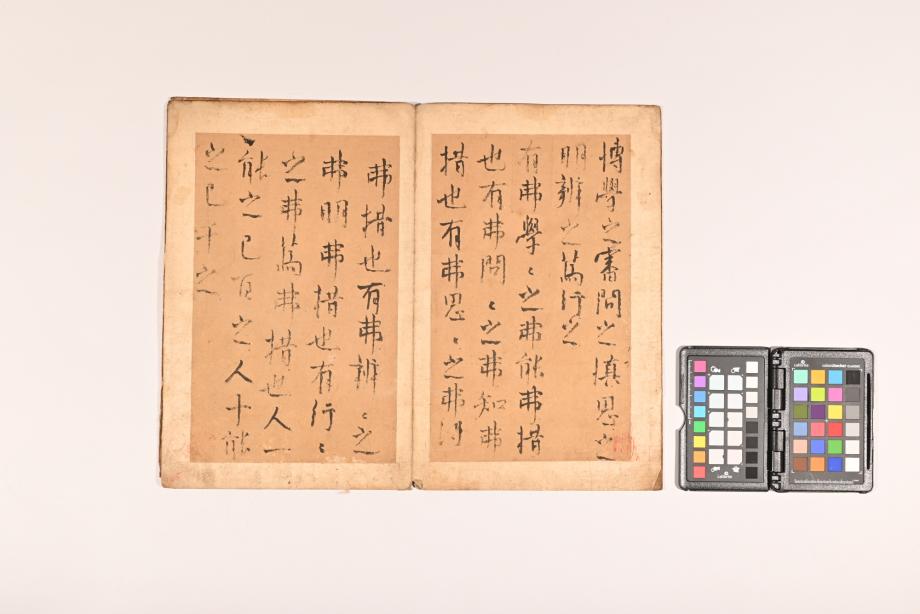 博學之審問之慎思之
明辨之篤行之
有弗學〻之弗能弗措
也有弗問〻之弗知弗
措也有弗思〻之弗得
弗措也有弗辨〻之
弗明弗措也有行〻
之弗篤弗措也人一
能之己百之人十能
之己千之